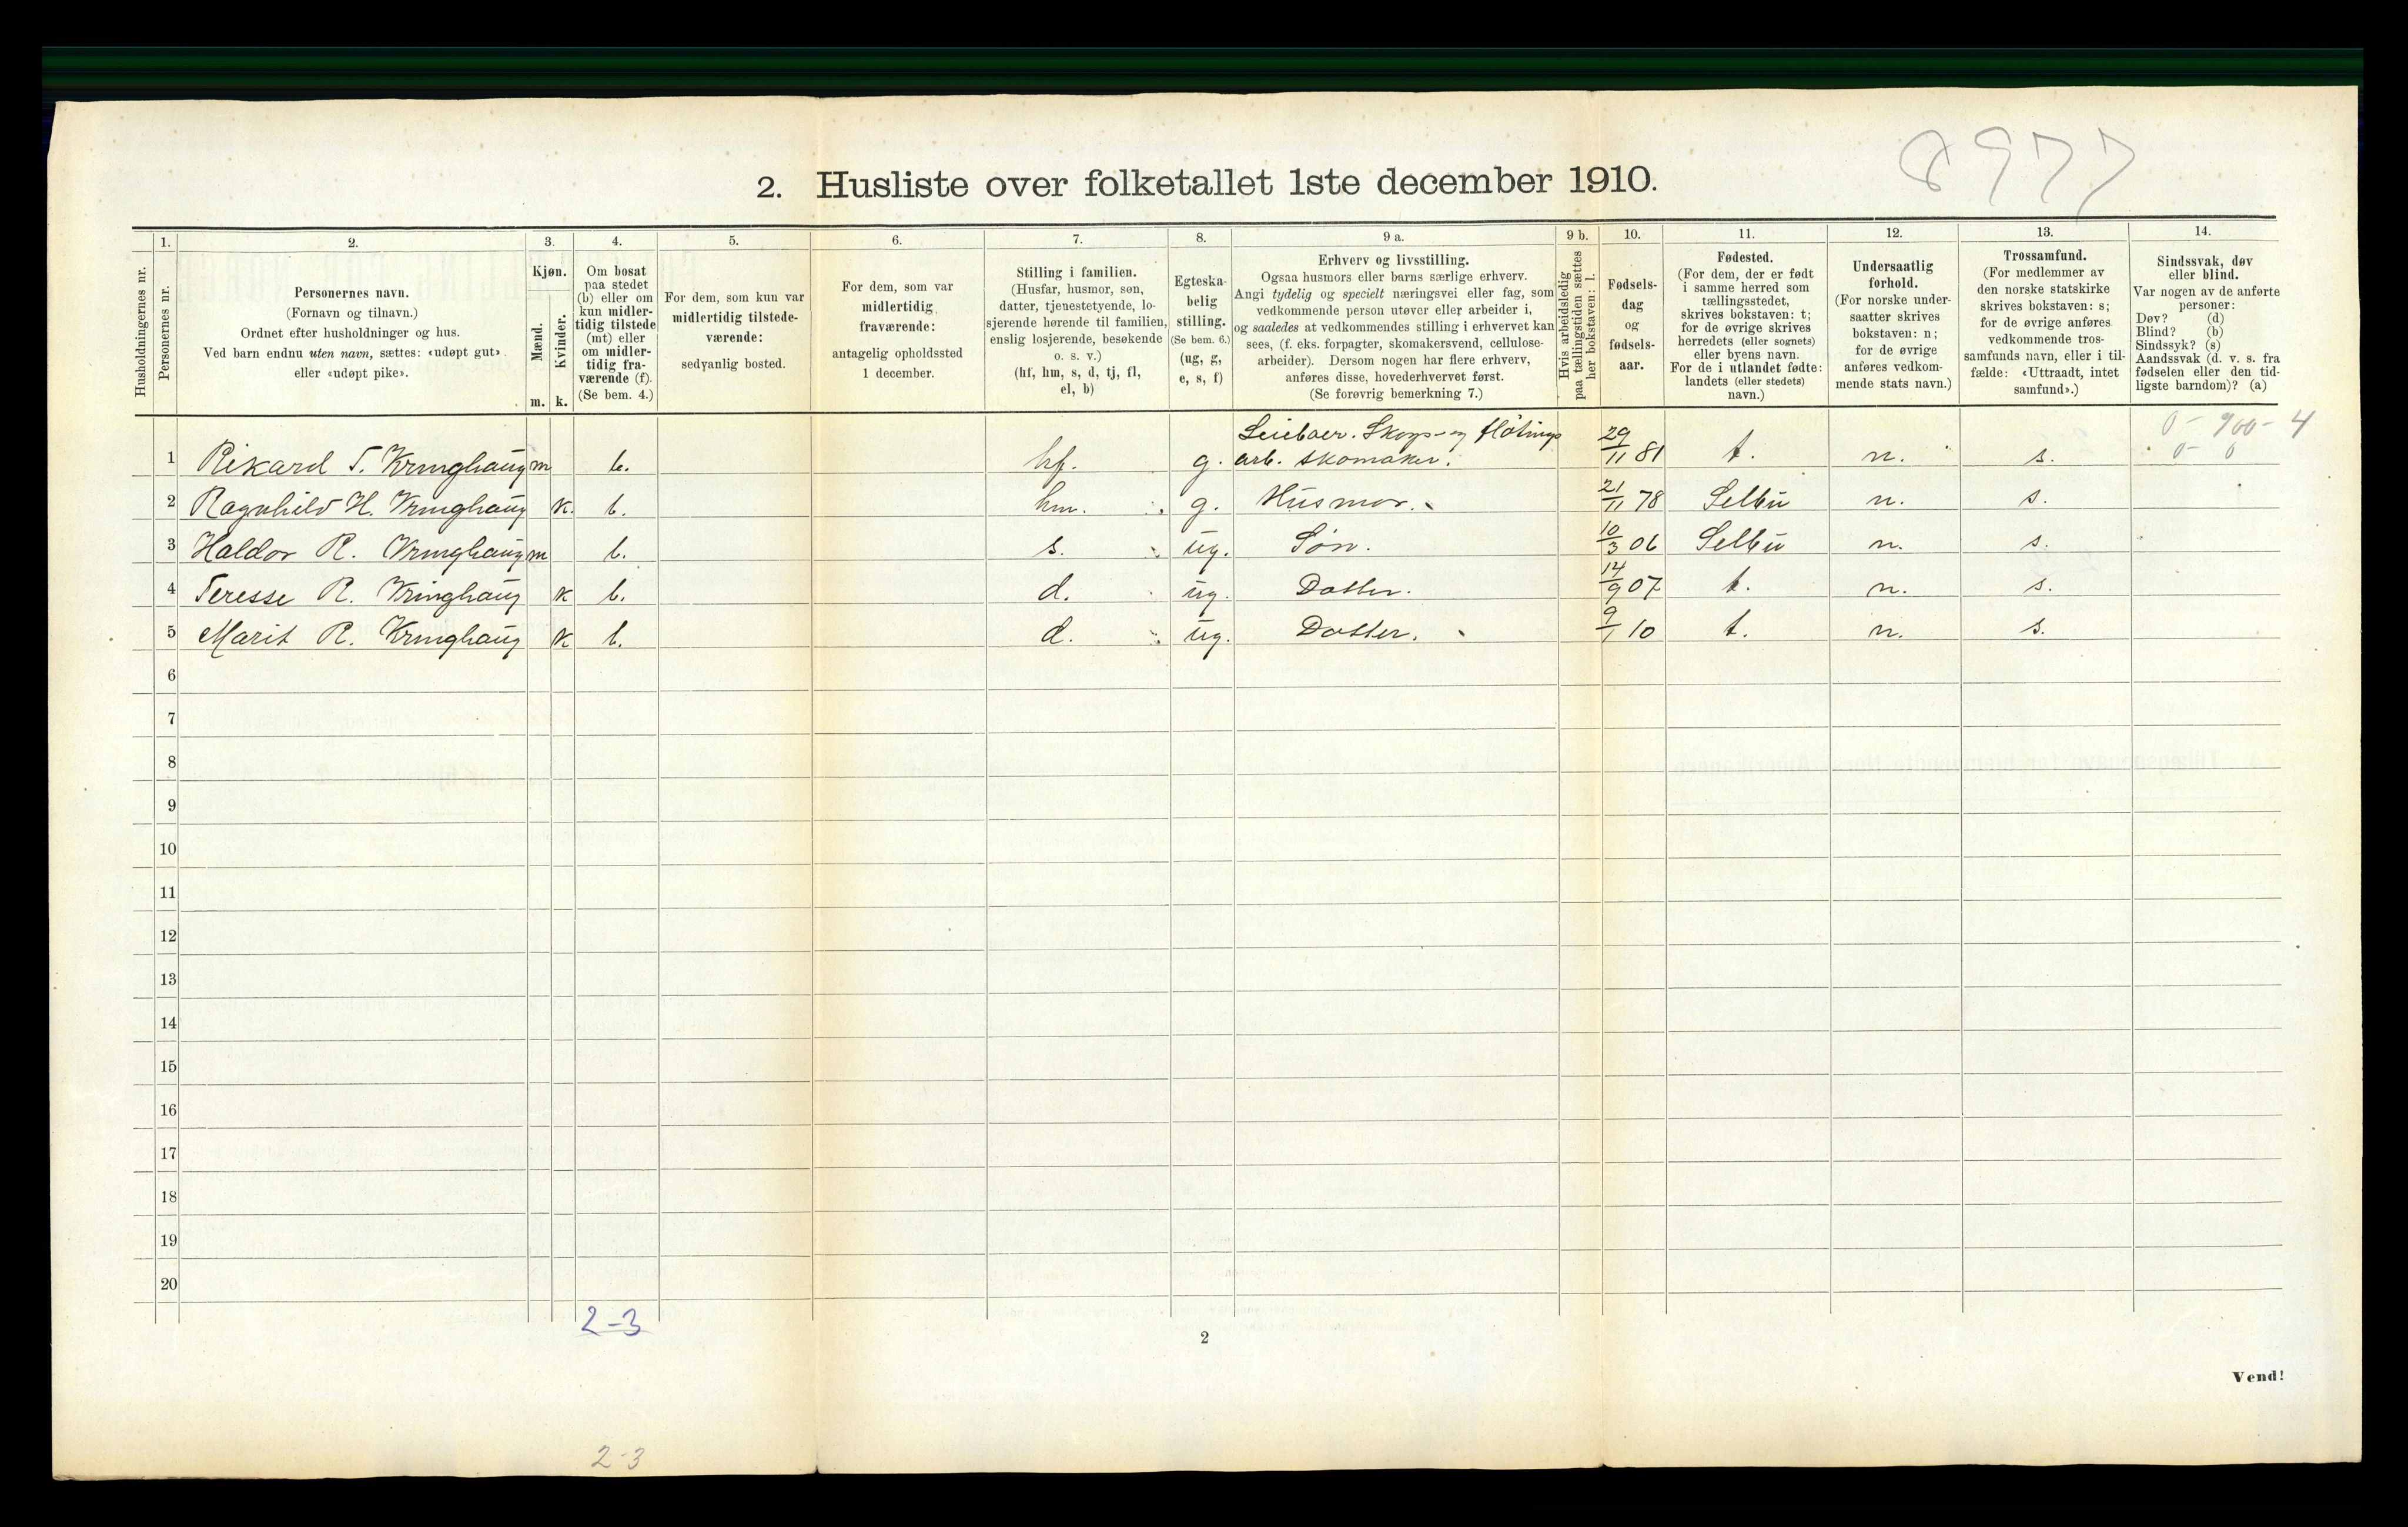 8977
2. Husliste over folketallet 1ste december 1910.
Husholdningernes nr.
1.
Personernes nr.
2.
Personernes navn.
(Fornavn og tilnavn.)
Ordnet efter husholdninger og hus.
Ved barn endnu uten navn, sættes: «udøpt gut»
eller «udøpt pike».
3.
Kjøn.
Mænd.
Kvinder.
m. k.
4.
Om bosat
paa stedet
(b) eller om
kun midler-
tidig tilstede
(mt) eller
om midler-
tidig fra-
værende (f).
(Se bem. 4.)
5.
For dem, som kun var
midlertidig tilstede-
værende:
sedvanlig bosted.
6.
For dem, som var
midlertidig
fraværende:
antagelig opholdssted
1 december.
7.
Stilling i familien.
(Husfar, husmor, søn,
datter, tjenestetyende, lo-
sjerende hørende til familien,
enslig losjerende, besøkende
o. s. v.)
(hf, hm, s, d, tj, fl,
el, b)
8.
Egteska-
belig
stilling.
(Se bem. 6.)
(ug, g,
e, s, f)
9 a.
Erhverv og livsstilling.
Ogsaa husmors eller barns særlige erhverv.
Angi tydelig og specielt næringsvei eller fag, som
vedkommende person utøver eller arbeider i,
og saaledes at vedkommendes stilling i erhvervet kan
sees, (f. eks. forpagter, skomakersvend, cellulose-
arbeider). Dersom nogen har flere erhverv,
anføres disse, hovederhvervet først.
(Se forøvrig bemerkning 7.)
9 b.
Hvis arbeidsledig
paa tællingstiden sættes
her bokstaven: l.
10.
Fødsels-
dag
og
fødsels-
aar.
11.
Fødested.
(For dem, der er født
i samme herred som
tællingsstedet,
skrives bokstaven: t;
for de øvrige skrives
herredets (eller sognets)
eller byens navn.
For de i utlandet fødte:
landets (eller stedets)
navn.)
12.
Undersaatlig
forhold.
(For norske under-
saatter skrives
bokstaven: n;
for de øvrige
anføres vedkom-
mende stats navn.)
13.
Trossamfund.
(For medlemmer av
den norske statskirke
skrives bokstaven: s;
for de øvrige anføres
vedkommende tros-
samfunds navn, eller i til-
fælde: «Uttraadt, intet
samfund».)
14.
Sindssvak, døv
eller blind.
Var nogen av de anførte
personer:
Døv? (d)
Blind? (b)
Sindssyk? (s)
Aandssvak (d. v. s. fra
fødselen eller den tid-
ligste barndom)? (a)
Skogs- og fløtnings 0 - 900 - 4
1 Rikard T. Kringhaug m b. hf. g. arb. skomaker. 29/11 81 t. n. s. 0 - 0
2 Ragnhild H. Kringhaug k. b. hm. g. Husmor. 21/11 78 Selbu n. s.
3 Haldor R. Kringhaug m b. s. ug. Søn. 10/3 06 Selbu n. s.
4 Teresse R. Kringhaug k b. d. ug. Datter. 14/9 07 t. n. s.
5 Marit R. Kringhaug k b. d. ug. Datter. 9/1 10 t. n. s.
6
7
8
9
10
11
12
13
14
15
16
17
18
19
20
2-3
2
Vend!
2-3